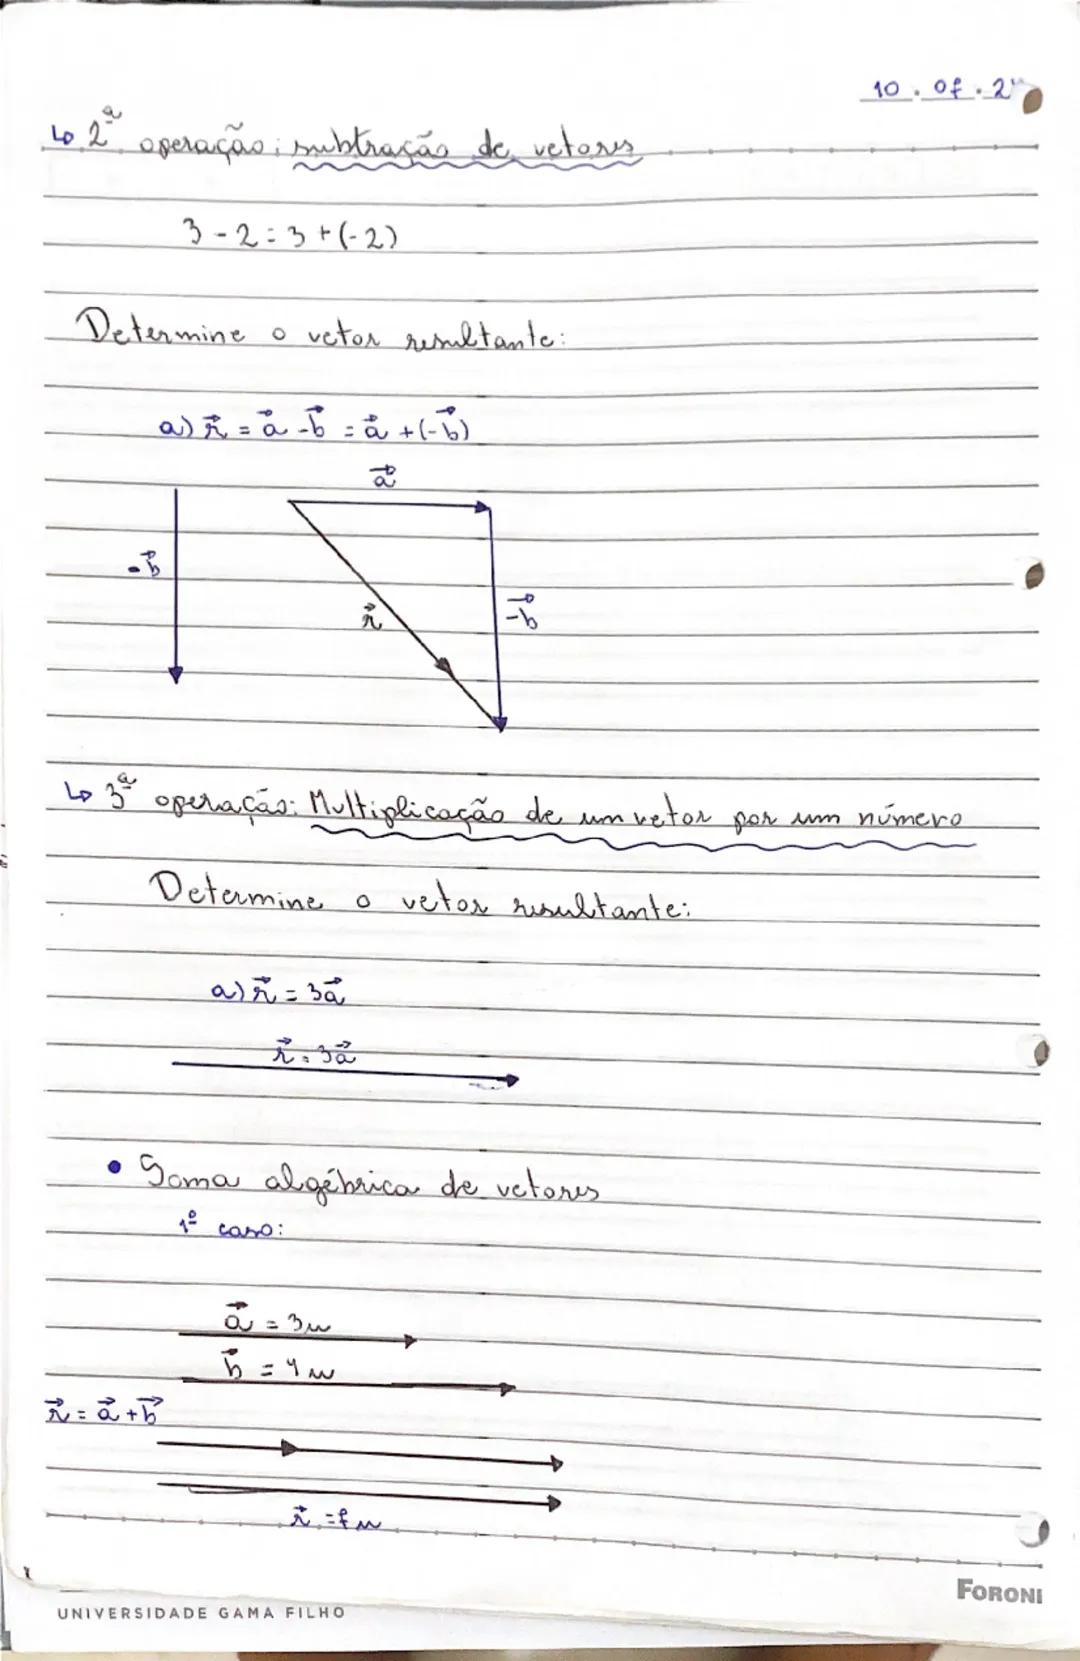 10.07.2
↳ 2ª operação: subtração de vetores
3 - 2 = 3 + (-2)
Determine o vetor resultante:
a) r⃗ = a⃗ - b⃗ = a⃗ + (-b⃗)
a⃗
-b⃗
r⃗
-b⃗
↳ 3ª operação: Multiplicação de um vetor por um número
Determine o vetor resultante:
a) r⃗ = 3a⃗
r⃗ = 3a⃗
• Soma algébrica de vetores
1º caso:
a⃗ = 3u
b⃗ = 4u
r⃗ = a⃗ + b⃗
r⃗ = 7u
FORONI
UNIVERSIDADE GAMA FILHO